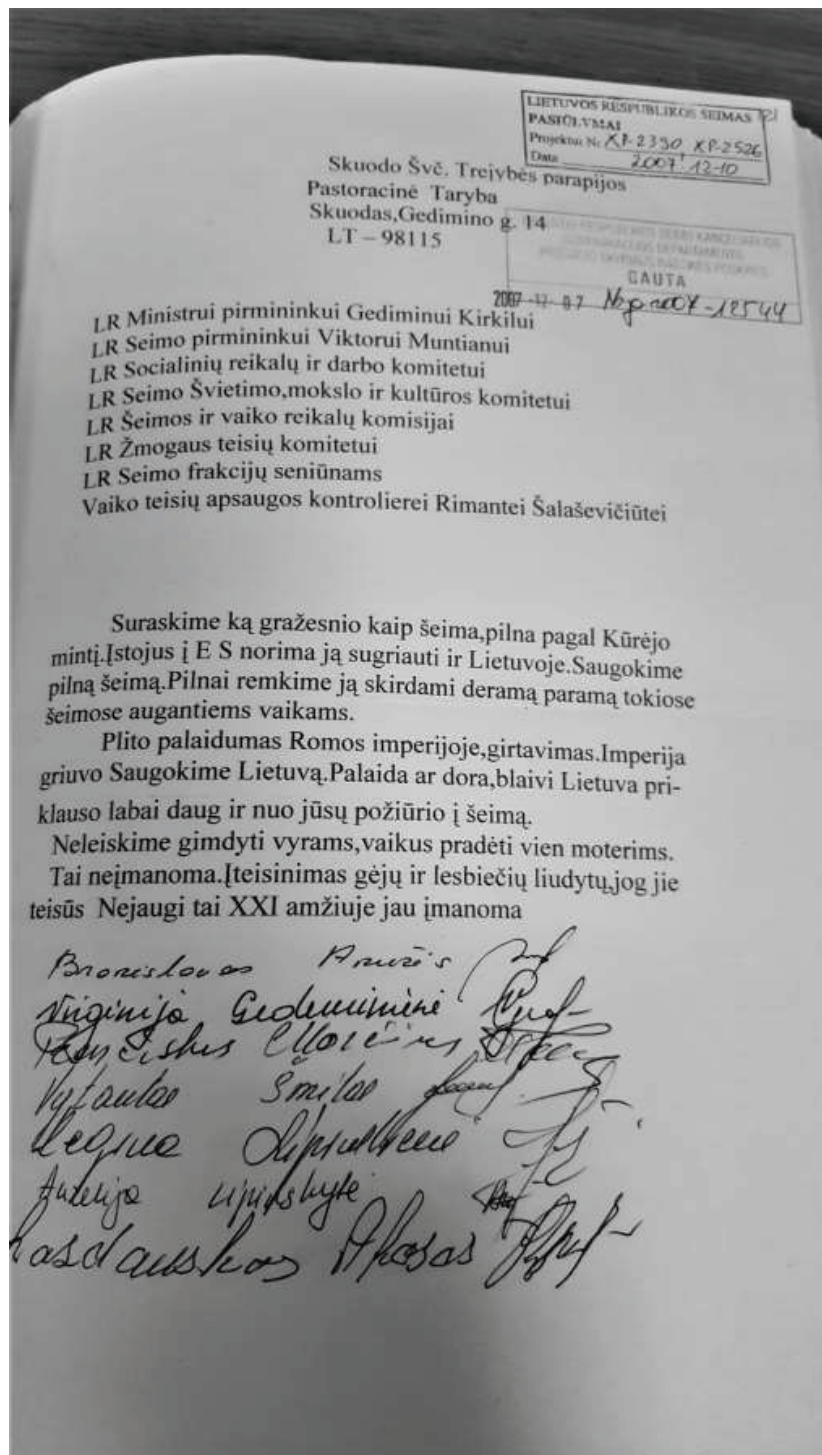 LIETUVOS RESPUBLIKOS SEIMAS 721
PASIŪLYMAI
Projektui Nr. XP-2390, XP-2526
Data 2007-12-10
Skuodo Švč. Trejybės parapijos
Pastoracinė Taryba
Skuodas,Gedimino g. 14
LT – 98115
GAUTA
2007-12-07 No g-2007-12544
LR Ministrui pirmininkui Gediminui Kirkilui
LR Seimo pirmininkui Viktorui Muntianui
LR Socialinių reikalų ir darbo komitetui
LR Seimo Švietimo,mokslo ir kultūros komitetui
LR Šeimos ir vaiko reikalų komisijai
LR Žmogaus teisių komitetui
LR Seimo frakcijų seniūnams
Vaiko teisių apsaugos kontrolierei Rimantei Šalaševičiūtei
Suraskime ką gražesnio kaip šeima,pilna pagal Kūrėjo
mintį.Įstojus į E S norima ją sugriauti ir Lietuvoje.Saugokime
pilną šeimą.Pilnai remkime ją skirdami deramą paramą tokiose
šeimose augantiems vaikams.
Plito palaidumas Romos imperijoje,girtavimas.Imperija
griuvo Saugokime Lietuvą.Palaida ar dora,blaivi Lietuva pri-
klauso labai daug ir nuo jūsų požiūrio į šeimą.
Neleiskime gimdyti vyrams,vaikus pradėti vien moterims.
Tai neįmanoma.Įteisinimas gėjų ir lesbiečių liudytų,jog jie
teisūs Nejaugi tai XXI amžiuje jau įmanoma
Bronislovas
Virginija Gedeminienė
Vytautas Šmitas
Regina
Aurelija Lipinskytė